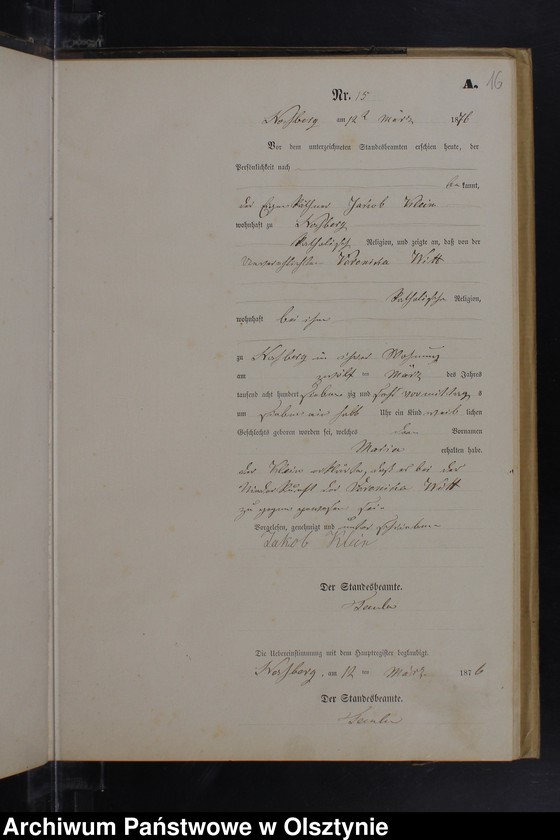 A. 16
Nr. 15
am 12 ten März 1876
Vor dem unterzeichneten Standesbeamten erschien heute, der
Persönlichkeit nach
be kannt,
der Jacob Klein
wohnhaft zu
katholischer Religion, und zeigte an, daß von der
unverehelichten Veronica Witt
katholischer Religion,
wohnhaft bei ihm
zu in ihrer Wohnung
am zwölf ten März des Jahres
tausend acht hundert sieben zig und sechs vormittags
um sieben ein halb Uhr ein Kind weib lichen
Geschlechts geboren worden sei, welches den Vornamen
Maria erhalten habe.
der Klein erklärte, daß er bei der
Niederkunft der Veronica Witt
zugegen gewesen sei
Vorgelesen, genehmigt und unterschrieben
Jakob Klein
Der Standesbeamte.
Die Uebereinstimmung mit dem Hauptregister beglaubigt.
am 12 ten März 1876
Der Standesbeamte.
Archiwum Państwowe w Olsztynie